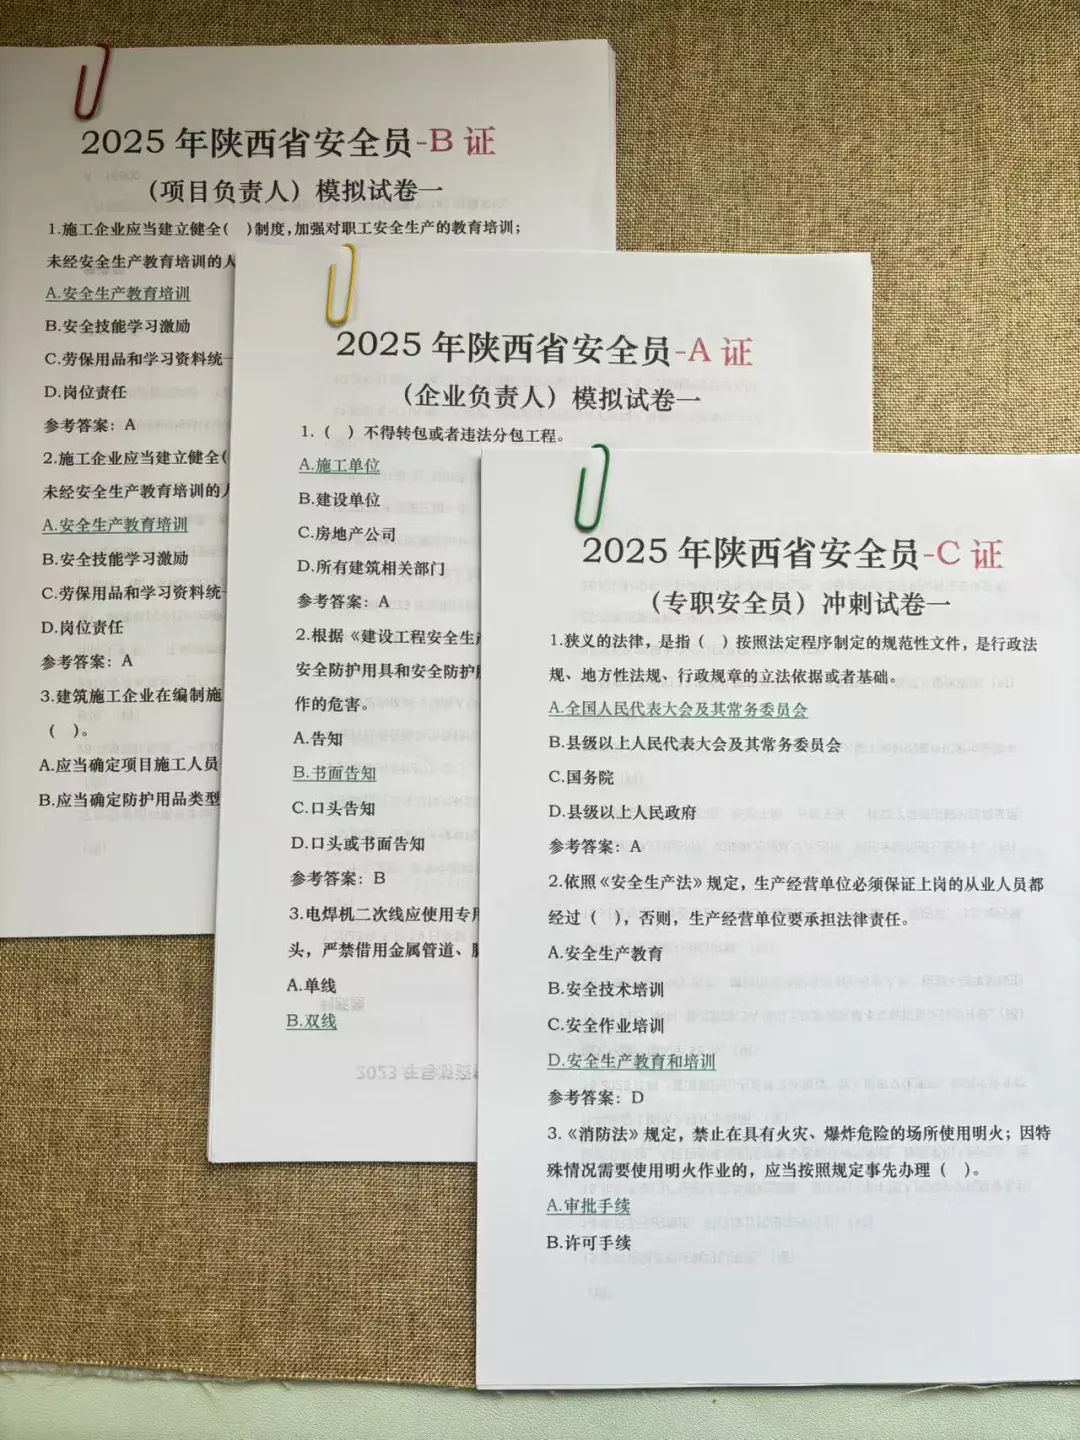 2025 年陕西省安全员-B 证
（项目负责人）模拟试卷一
1.施工企业应当建立健全(　)制度,加强对职工安全生产的教育培训;
未经安全生产教育培训的人
A.安全生产教育培训
B.安全技能学习激励
C.劳保用品和学习资料统一
D.岗位责任
参考答案：A
2.施工企业应当建立健全(
未经安全生产教育培训的人
A.安全生产教育培训
B.安全技能学习激励
C.劳保用品和学习资料统一
D.岗位责任
参考答案：A
3.建筑施工企业在编制施
（　）。
A.应当确定项目施工人员
B.应当确定防护用品类型
2025 年陕西省安全员-A 证
（企业负责人）模拟试卷一
1.（　）不得转包或者违法分包工程。
A.施工单位
B.建设单位
C.房地产公司
D.所有建筑相关部门
参考答案：A
2.根据《建设工程安全生产
安全防护用具和安全防护服
作的危害。
A.告知
B.书面告知
C.口头告知
D.口头或书面告知
参考答案：B
3.电焊机二次线应使用专用
头，严禁借用金属管道、
A.单线
B.双线
2025 年陕西省安全员-C 证
（专职安全员）冲刺试卷一
1.狭义的法律，是指（　）按照法定程序制定的规范性文件，是行政法
规、地方性法规、行政规章的立法依据或者基础。
A.全国人民代表大会及其常务委员会
B.县级以上人民代表大会及其常务委员会
C.国务院
D.县级以上人民政府
参考答案：A
2.依照《安全生产法》规定，生产经营单位必须保证上岗的从业人员都
经过（　），否则，生产经营单位要承担法律责任。
A.安全生产教育
B.安全技术培训
C.安全作业培训
D.安全生产教育和培训
参考答案：D
3.《消防法》规定，禁止在具有火灾、爆炸危险的场所使用明火；因特
殊情况需要使用明火作业的，应当按照规定事先办理（　）。
A.审批手续
B.许可手续